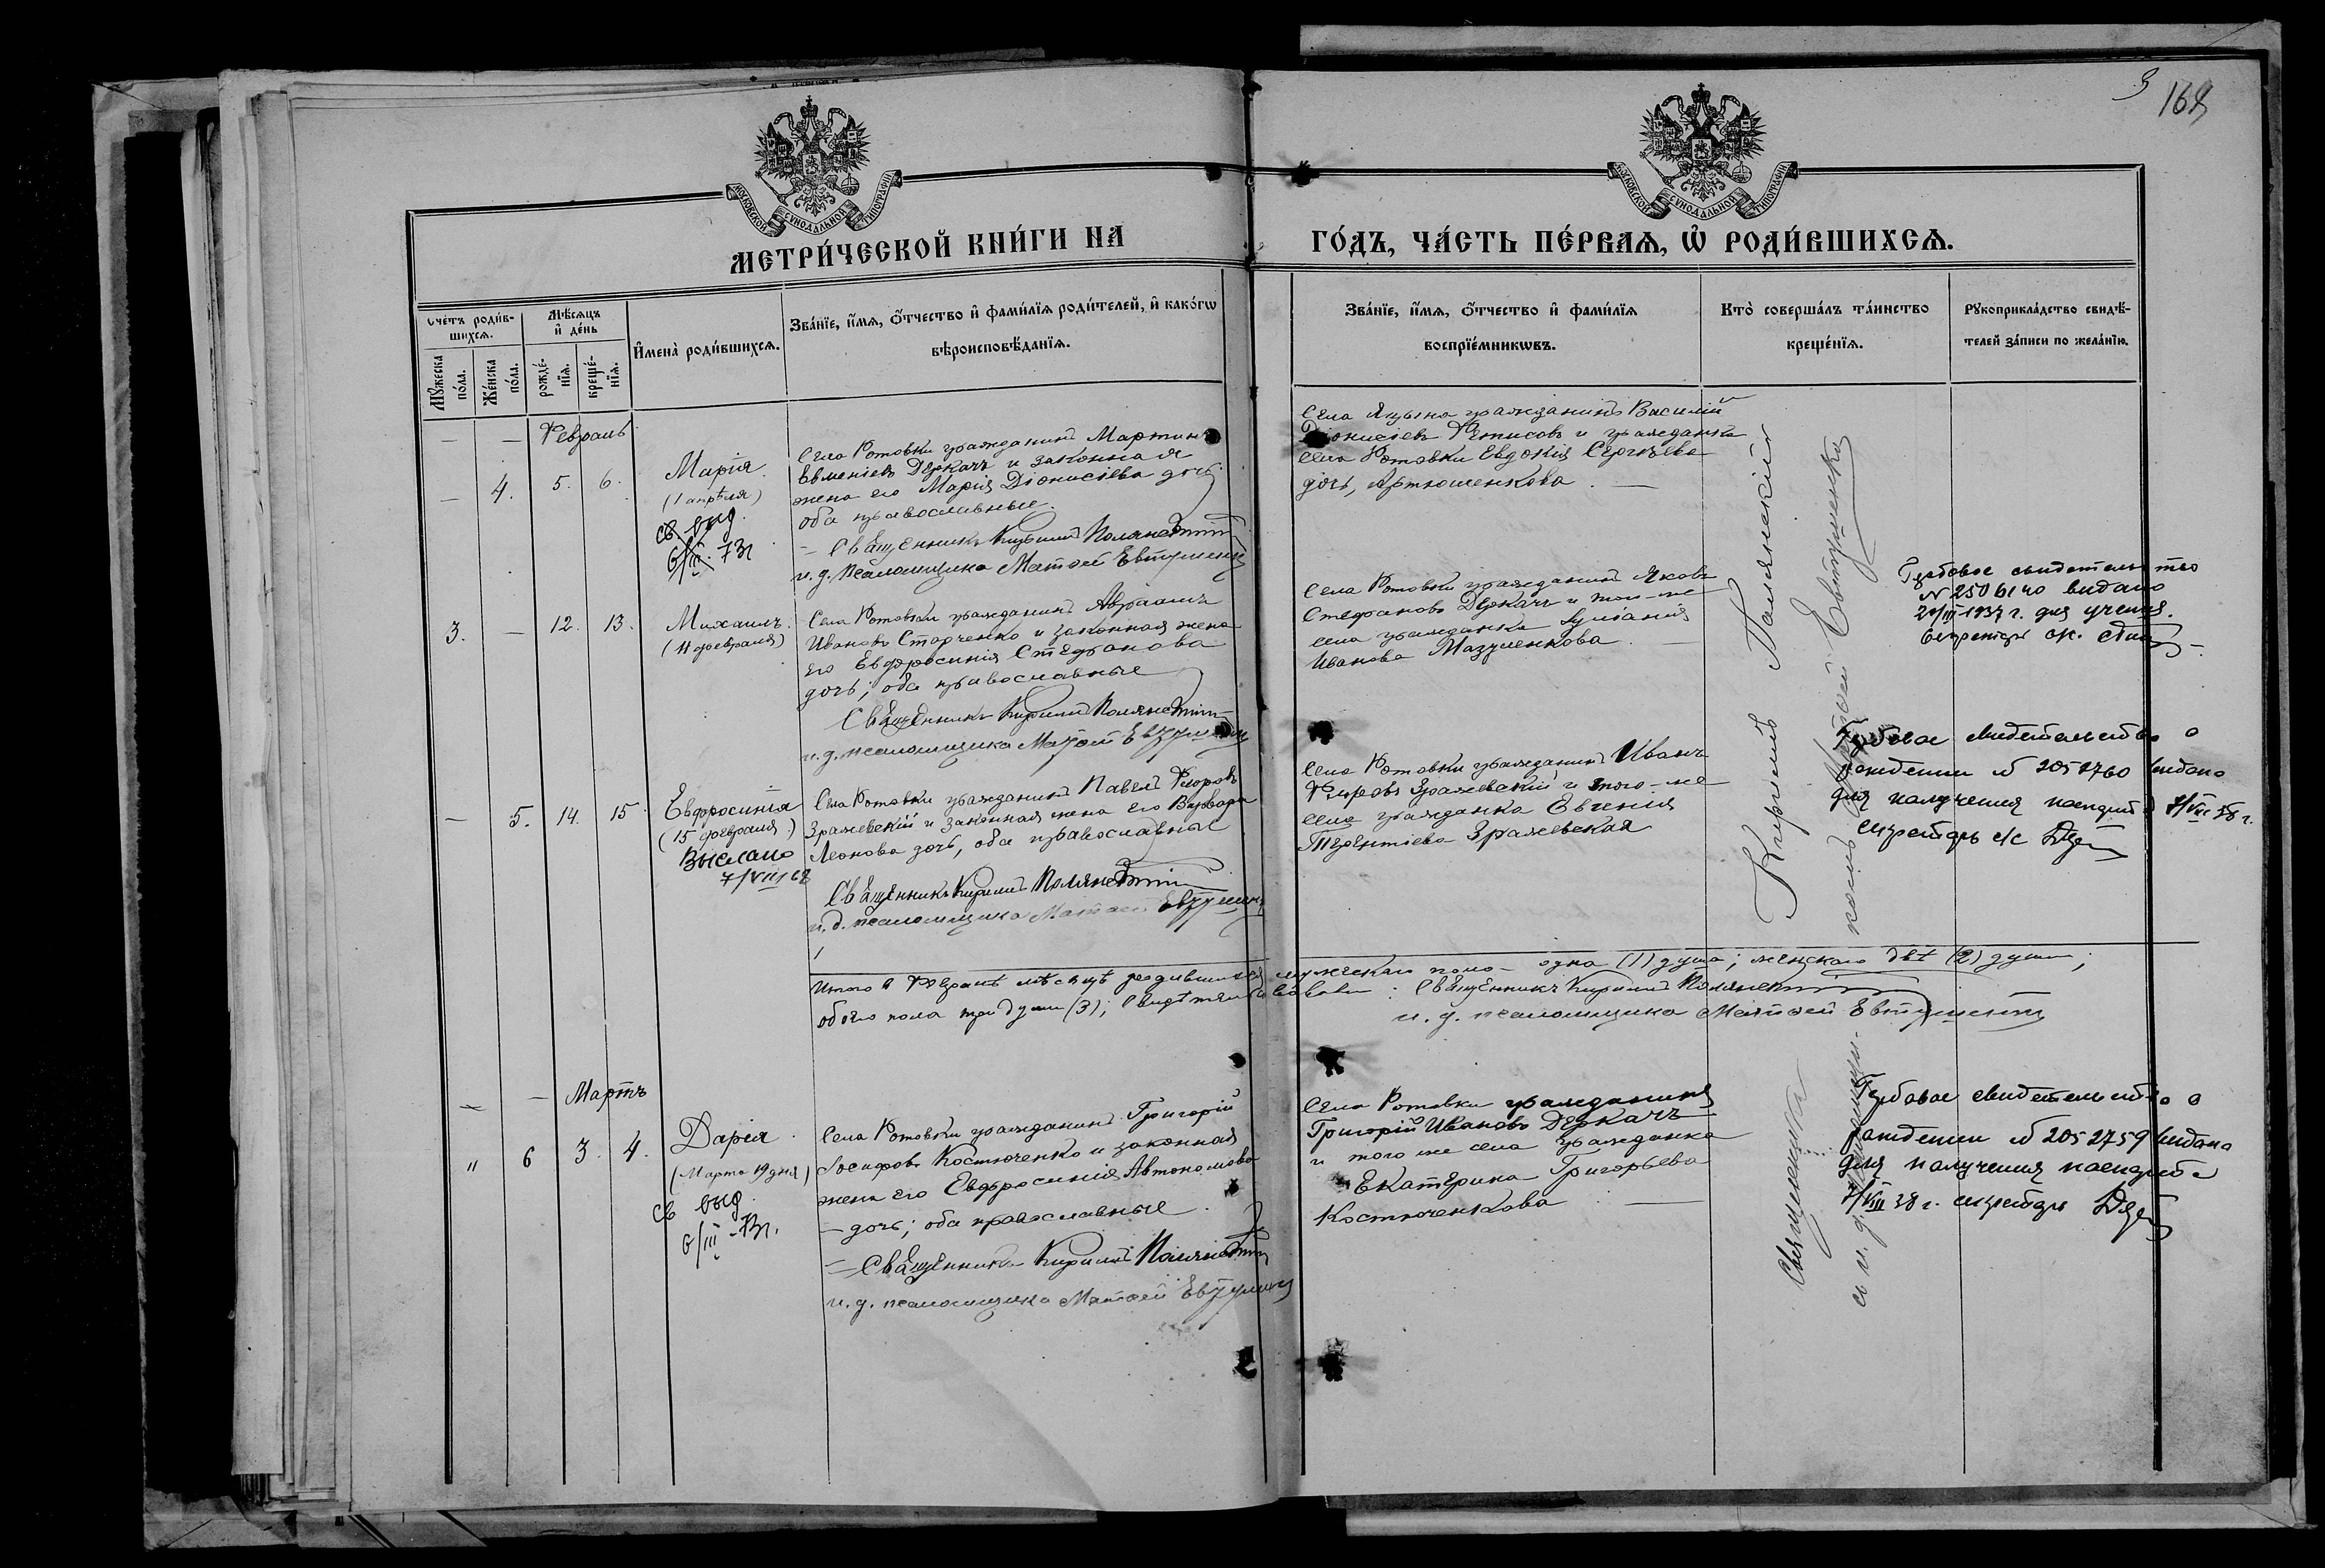 3
169
МОСКОВСКОЙ СѴНОДАЛЬНОЙ ТИПОГРАФІИ
МОСКОВСКОЙ СѴНОДАЛЬНОЙ ТИПОГРАФІИ
МЕТРИ́ЧЕСКОЙ КНИ́ГИ НА ГО́ДЪ, ЧА́СТЬ ПЕ́РВАѦ, Ѡ҆ РОДИ́ВШИХСѦ.
Счетъ роди́в-
шихсѧ.
Мꙋжеска
по́ла.
Же́нска
по́ла.
Мѣсяцъ
и҆ де́нь
рожде́-
нїѧ.
креще́-
нїѧ.
И҆мена̀ роди́вшихсѧ.
Зва́нїе, и҆́мѧ, ѻ҆́тчество и҆ фами́лїѧ роди́телей, и҆ како́гѡ
вѣроисповѣ́данїѧ.
Зва́нїе, и҆́мѧ, ѻ҆́тчество и҆ фами́лїѧ
воспрїе́мникѡвъ.
Кто̀ соверша́лъ та́инство
креще́нїѧ.
Рꙋкоприкла́дство свидѣ́-
телей за́писи по жела́нїю.
— — Февраль
— 4. 5. 6.
Марія
(1 апрѣля)
св. выд.
6/III. 73г
Села Ротовки гражданинъ Мартинъ
Евменіевъ Деркачъ и законная
жена его Марія Діонисіева дочь
оба православные.
— Священникъ Кириллъ Полянскій
и. д. псаломщика Матвей Евтушенко
Села Яцына гражданинъ Василій
Діонисіевъ Фетисовъ и гражданка
села Ротовки Евдокія Сергѣева
дочь, Артюшенкова. —
3. — 12. 13.
Михаилъ.
(11 февраля)
Села Ротовки гражданинъ Авраамъ
Ивановъ Старченко и законная жена
его Евфросинія Стефанова
дочь; оба православные
Священникъ Кириллъ Полянскій
и. д. псаломщика Матвей Евтушенко
Села Ротовки гражданинъ Яковъ
Стефановъ Деркачъ и того-же
села гражданка Іуліанія
Иванова Мазуленкова. —
Гербовое свидетельство
№ 2506140 видано
20/III-1937 г. для учения.
Секретарь с/с.
— 5. 14. 15.
Евфросинія
(15 февраля.)
Выслано
7/VIII 68
Села Ротовки гражданинъ Павелъ Федоровъ
Зражевскій и законная жена его Варвара
Леонова дочь, оба православные
Священникъ Кириллъ Полянскій
и. д. псаломщика Матвей Евтушенко
Села Ротовки гражданинъ Иванъ
Федоровъ Зражевскій и того-же
села гражданка Евгенія
Терентіева Зражевская
Гербовое свидетельство о
рождении № 2052760 видано
для получения паспорта 7/VIII 38 г.
секретарь с/с
Итого в Февралѣ мѣсяцѣ родившихся мужескаго пола — одна (1) душа; женскаго двѣ (2) души;
обоего пола три души (3); Свидѣтельствовали: Священникъ Кириллъ Полянскій
и. д. псаломщика Матвей Евтушенко
— — Мартъ
" 6 3. 4.
Дарія
(Марта 19 дня)
св выд
6/III - 73г.
Села Ротовки гражданинъ Григорій
Іосифовъ Костюченко и законная
жена его Евфросинія Автономова
— дочь; оба православные.
— Священникъ Кириллъ Полянскій
и. д. псаломщика Матвей Евтушенко
Села Ротовки гражданинъ
Григорій Ивановъ Деркачъ
и того же села гражданка
Екатерина Григорьева
Костюченкова —
Гербовое свидетельство о
рождении № 2052759 видано
для получения паспорта
7/VIII 38 г. секретарь
Священникъ Кириллъ Полянскій
съ и. д. псаломщи-
комъ Матвеемъ Евтушенко